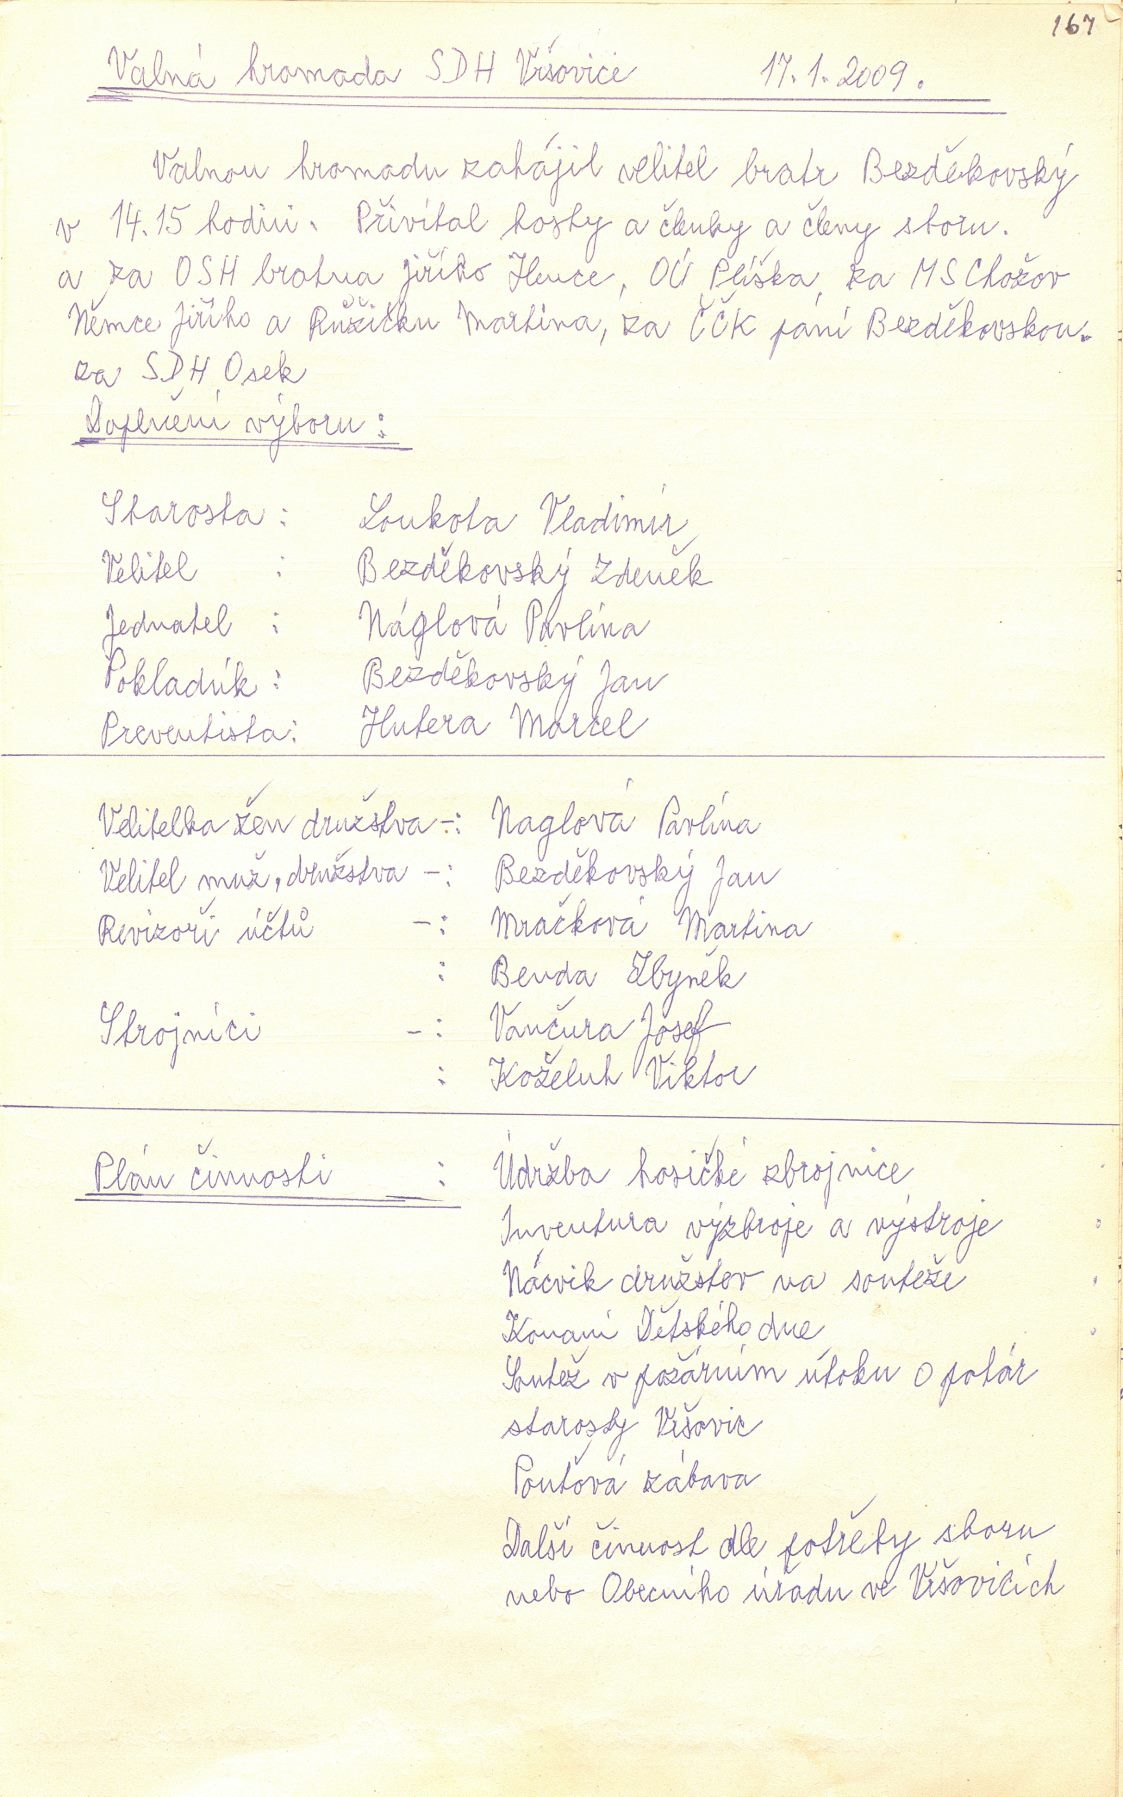 167
Valná hromada SDH Vršovice 17.1.2009.
Valnou hromadu zahájil velitel bratr Bezděkovský
v 14.15 hodin. Přivítal hosty a členky a členy sboru.
a za OSH bratra Jiřího Hence, OÚ Plíška, za MS Chožov
Němce Jiřího a Růžičku Martina, za ČČK paní Bezděkovskou.
za SDH Osek
Doplnění výboru:
Starosta : Loukota Vladimír
Velitel : Bezděkovský Zdeněk
Jednatel : Náglová Pavlína
Pokladník : Bezděkovský Jan
Preventista: Hutera Marcel
Velitelka žen družstva -: Naglová Pavlína
Velitel muž. družstva -: Bezděkovský Jan
Revizoři účtů -: Mračková Martina
: Benda Zbyněk
Strojníci -: Vančura Josef
: Koželuh Viktor
Plán činnosti : Údržba hasičké zbrojnice
Inventura výzbroje a výstroje
Nácvik družstev na souteže
Konaní Dětského dne
Soutež v požárním útoku o pohár
starosty Vršovic
Pouťová zábava
Další činnost dle potřeby sboru
nebo Obecního úřadu ve Vršovicích